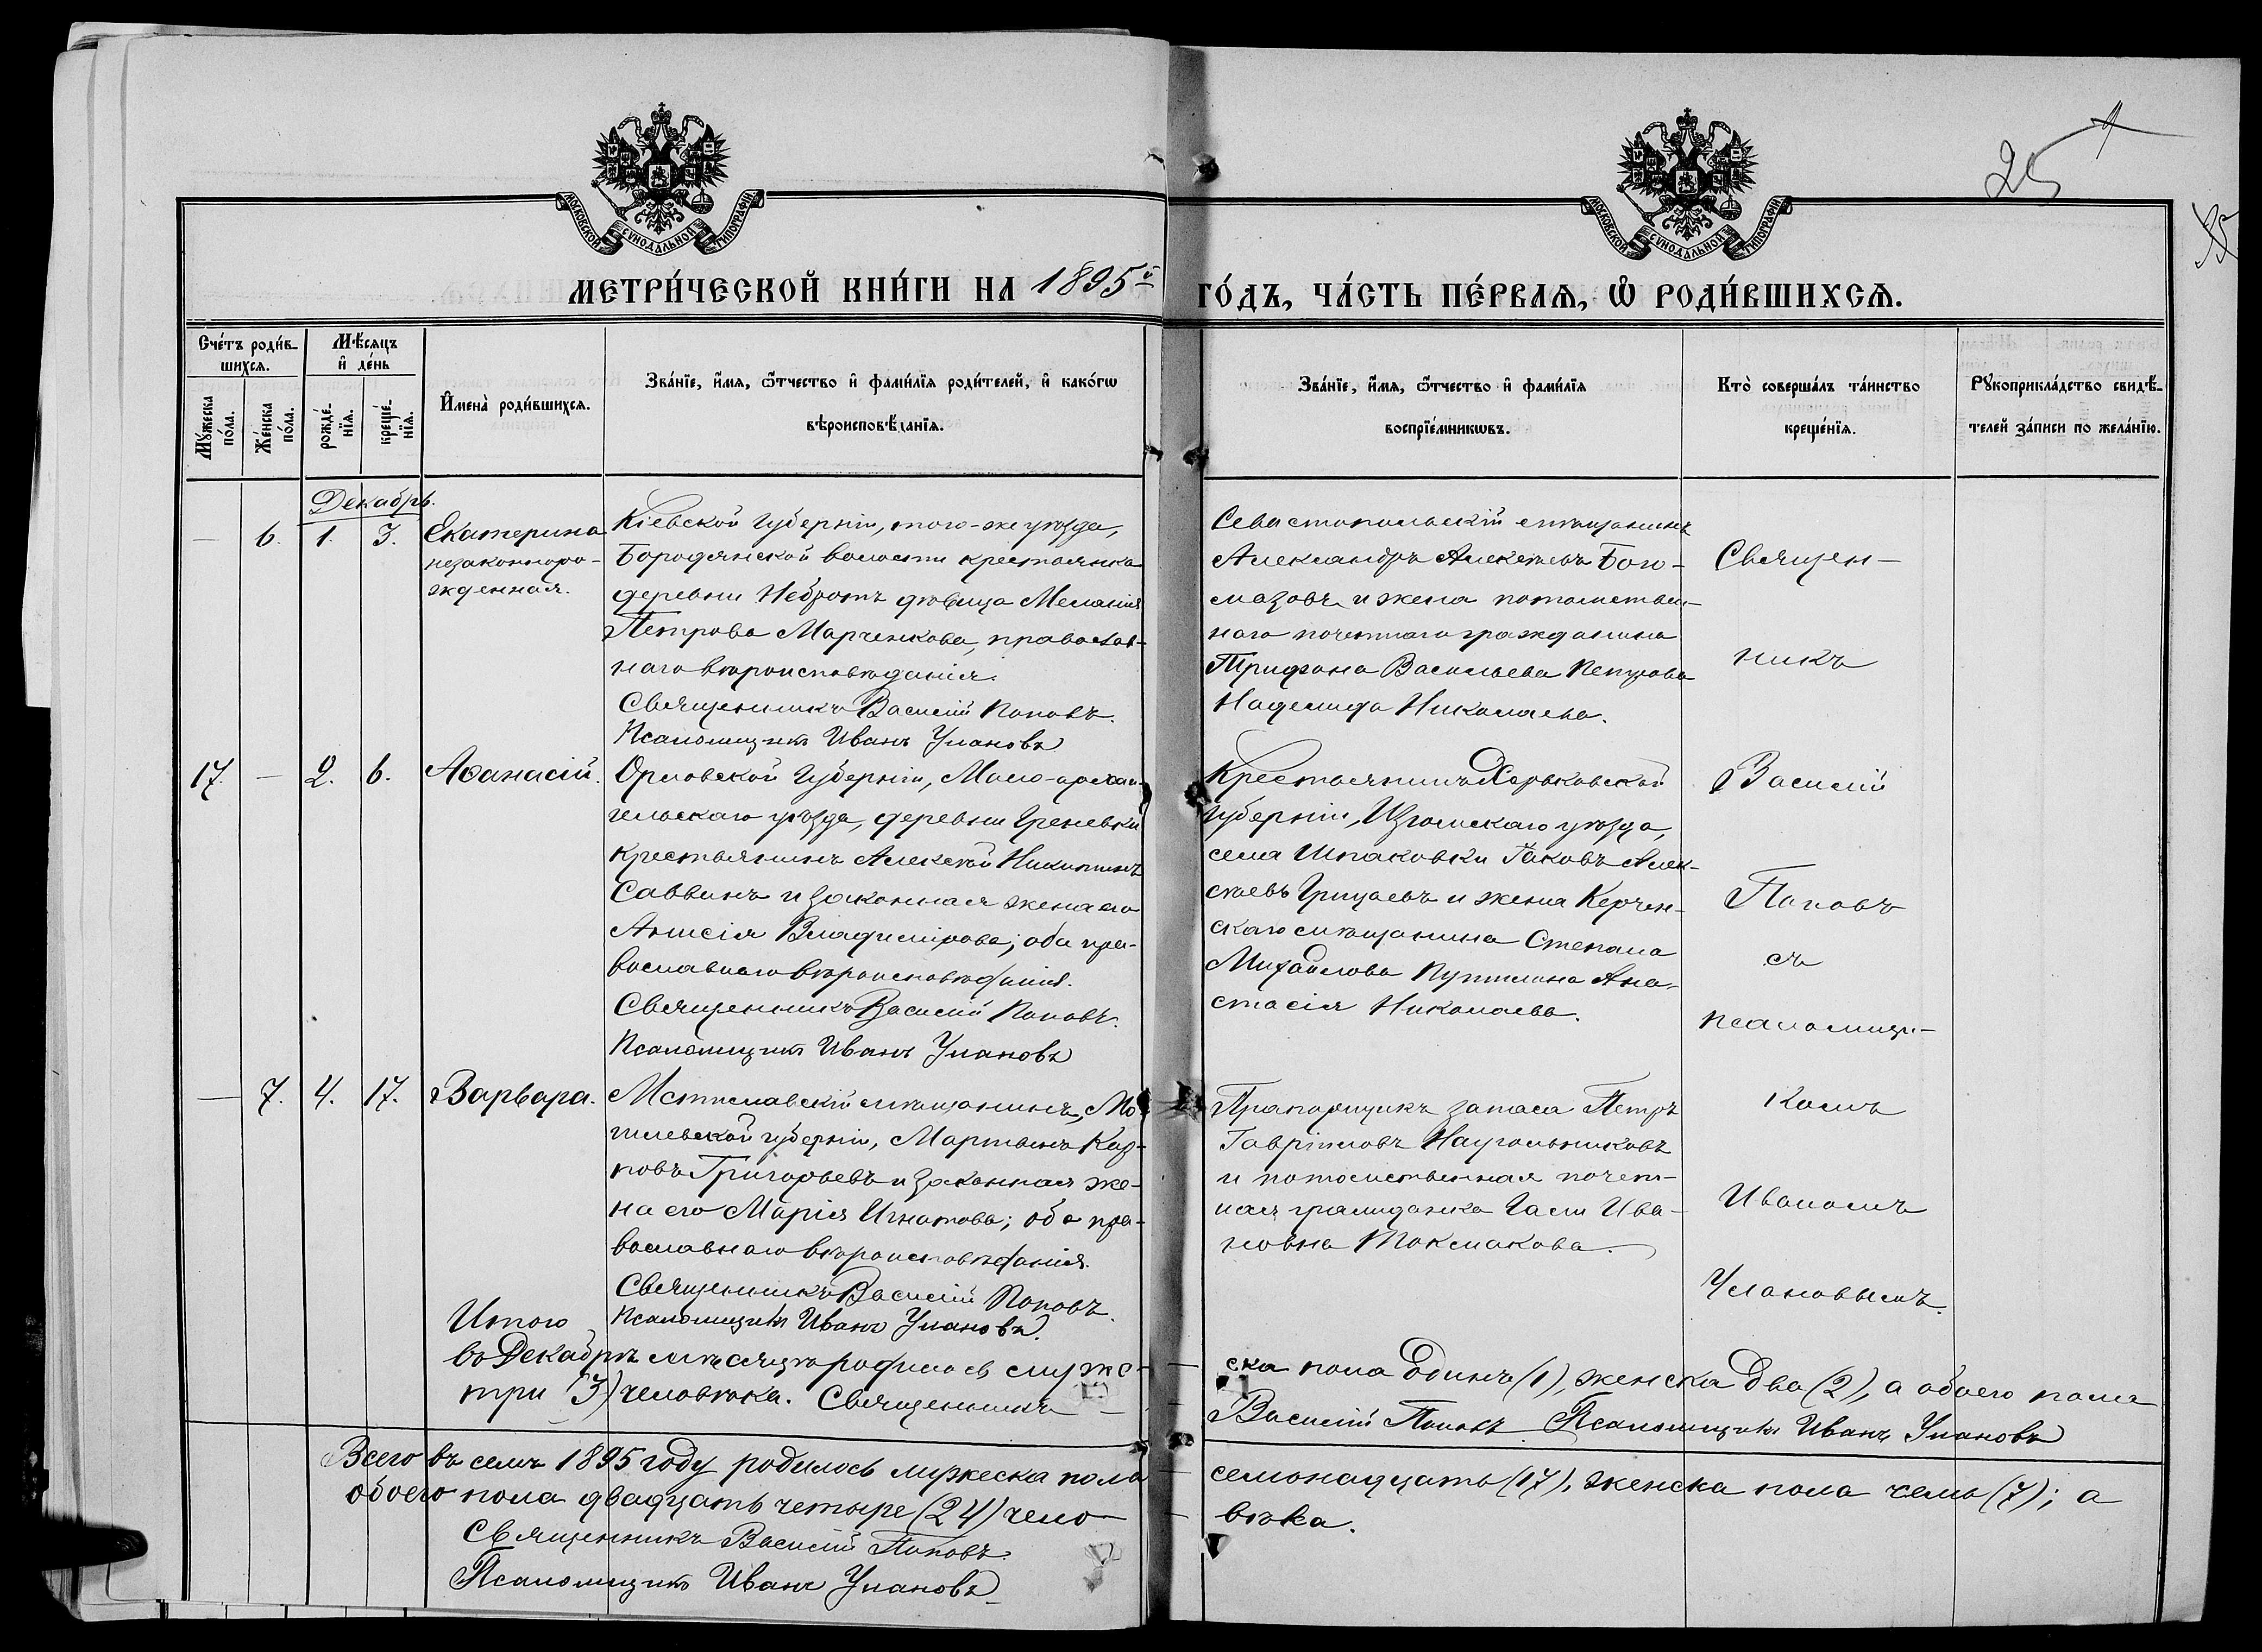 25
МОСКОВСКОЙ СѴНОДАЛЬНОЙ ТИПОГРАФІИ
МОСКОВСКОЙ СѴНОДАЛЬНОЙ ТИПОГРАФІИ
МЕТРИ́ЧЕСКОЙ КНИ́ГИ НА 1895й ГО́ДЪ, ЧА́СТЬ ПЕ́РВАѦ, Ѡ҆ РОДИ́ВШИХСѦ.
Сче́тъ роди́в-
шихсѧ.
Мꙋ́жеска по́ла.
Же́нска по́ла.
Мѣ́сяцъ
и҆ де́нь
рожде́-
нїѧ.
креще́-
нїѧ.
И҆мена̀ роди́вшихсѧ.
Зва́нїе, и҆́мѧ, ѻ҆́тчество и҆ фами́лїѧ роди́телей, и҆ како́гѡ
вѣроисповѣ́данїѧ.
Зва́нїе, и҆́мѧ, ѻ҆́тчество и҆ фами́лїѧ
воспрїе́мникѡвъ.
Кто̀ соверша́лъ та́инство
креще́нїѧ.
Рꙋкоприкла́дство свидѣ́-
телей за́писи по жела́нїю.
Декабрь.
— 6. 1. 3.
Екатерина
незаконноро-
жденная.
Кіевской губерніи, того-же уѣзда,
Бородянской волости крестьянка
деревни Небратъ дѣвица Меланія
Петрова Марченкова, православ-
наго вѣроисповѣданія.
Священникъ Василій Поповъ.
Псаломщикъ Иванъ Улановъ
Севастопольскій мѣщанинъ
Александръ Алексѣевъ Бого-
мазовъ и жена потомствен-
наго почетнаго гражданина
Трифона Васильева Петрова
Надежда Николаева.
17. — 2. 6.
Аѳанасій.
Орловской губерніи, Мало-архан-
гельскаго уѣзда, деревни Греневки
крестьянинъ Алексѣй Никитинъ
Саввинъ и законная жена его
Анисія Владимірова; оба пра-
вославнаго вѣроисповѣданія.
Священникъ Василій Поповъ.
Псаломщикъ Иванъ Улановъ
Крестьянинъ Харьковской
губерніи, Изюмскаго уѣзда,
села Шпаковки Іаковъ Алек-
сѣевъ Грицаевъ и жена Керчен-
скаго мѣщанина Степана
Михайлова Путилина Ана-
стасія Николаева.
— 7. 4. 17.
Варвара.
Мстиславскій мѣщанинъ, Мо-
гилевской губерніи, Мартынъ Кар-
повъ Григорьевъ и законная же-
на его Марія Игнатова; оба пра-
вославнаго вѣроисповѣданія.
Священникъ Василій Поповъ.
Псаломщикъ Иванъ Улановъ.
Прапорщикъ запаса Петръ
Гавріиловъ Наугольниковъ
и потомственная почет-
ная гражданка Ива-
новна Токмакова.
Священ-
никъ
Василій
Поповъ
съ
псаломщи-
комъ
Иваномъ
Улановымъ.
Итого
въ Декабрѣ мѣсяцѣ родилось муже-ска пола одинъ (1), женска два (2), а обоего пола
три (3) человѣка. Священникъ — Василій Поповъ Псаломщикъ Иванъ Улановъ
Всего въ семъ 1895 году родилось мужеска пола — семнадцать (17), женска пола семь (7); а
обоего пола двадцать четыре (24) чело — вѣка.
Священникъ Василій Поповъ.
Псаломщикъ Иванъ Улановъ